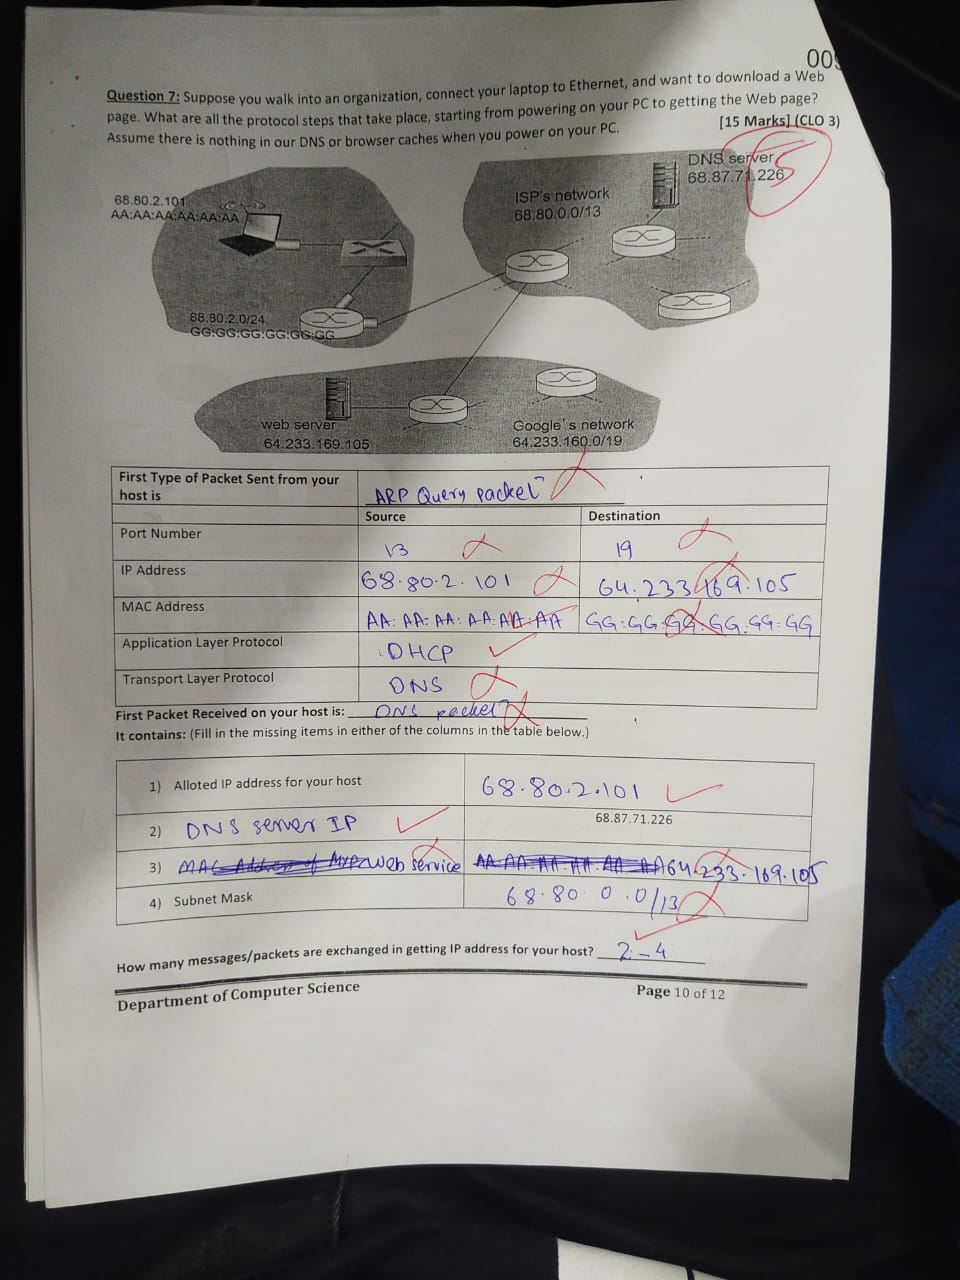 009
Question 7: Suppose you walk into an organization, connect your laptop to Ethernet, and want to download a Web
page. What are all the protocol steps that take place, starting from powering on your PC to getting the Web page?
Assume there is nothing in our DNS or browser caches when you power on your PC. [15 Marks] (CLO 3)
5
DNS server
68.87.71.226
ISP's network
68.80.0.0/13
68.80.2.101
AA:AA:AA:AA:AA:AA
68.80.2.0/24
GG:GG:GG:GG:GG:GG
web server
64.233.169.105
Google's network
64.233.160.0/19
First Type of Packet Sent from your host is ARP Query packet
Source Destination
Port Number 13 19
IP Address 68.80.2.101 64.233.169.105
MAC Address AA:AA:AA:AA:AA:AA GG:GG:GG:GG:GG:GG
Application Layer Protocol DHCP
Transport Layer Protocol DNS
First Packet Received on your host is: DNS packet
It contains: (Fill in the missing items in either of the columns in the table below.)
1) Alloted IP address for your host 68.80.2.101
2) DNS server IP 68.87.71.226
3) Web service 64.233.169.105
4) Subnet Mask 68.80.0.0/13
How many messages/packets are exchanged in getting IP address for your host? 2-4
Department of Computer Science Page 10 of 12